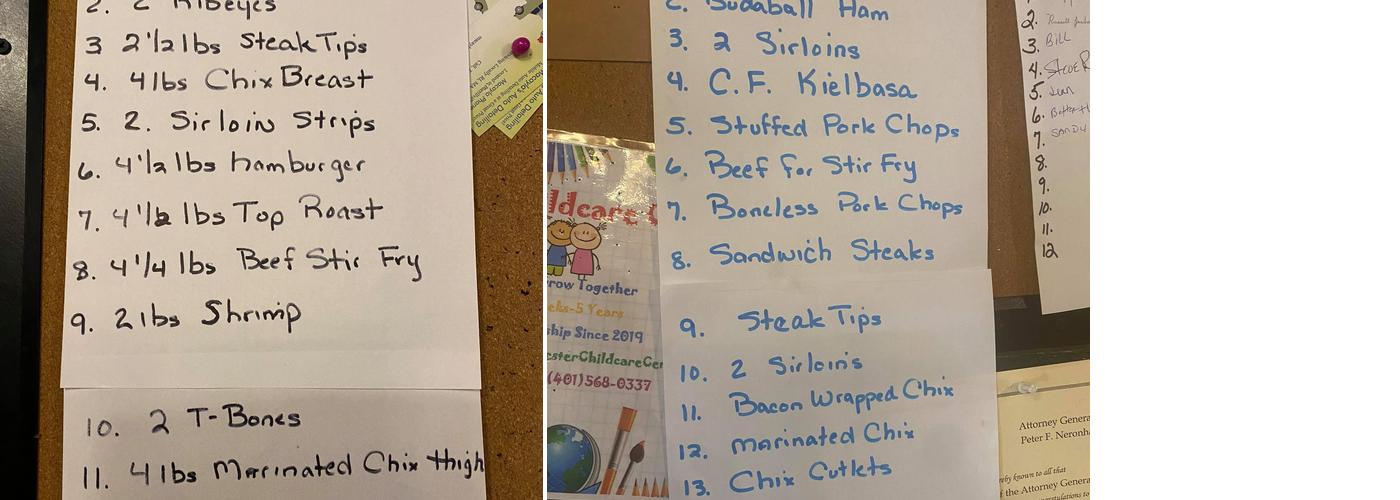 2. 2 Ribeyes
3 2 1/2 lbs Steak Tips
4. 4 lbs Chix Breast
5. 2. Sirloin Strips
6. 4 1/2 lbs hamburger
7. 4 1/2 lbs Top Roast
8. 4 1/4 lbs Beef Stir Fry
9. 2 lbs Shrimp
10. 2 T-Bones
11. 4 lbs Marinated Chix thigh
Auto Detailing
Moccyio's Auto Detailing
2. Sudaball Ham
3. 2 Sirloins
4. C.F. Kielbasa
5. Stuffed Pork Chops
6. Beef for Stir Fry
7. Boneless Pork Chops
8. Sandwich Steaks
9. Steak Tips
10. 2 Sirloins
11. Bacon Wrapped Chix
12. Marinated Chix
13. Chix Cutlets
ldcare C
row Together
eks-5 Years
ship Since 2019
esterChildcareCen
(401)568-0337
2.
3. Bill
4. Steve R
5. Jean
6.
7. Sandy
8.
9.
10.
11.
12
Attorney Genera
Peter F. Neronha
reby known to all that
f the Attorney Genera